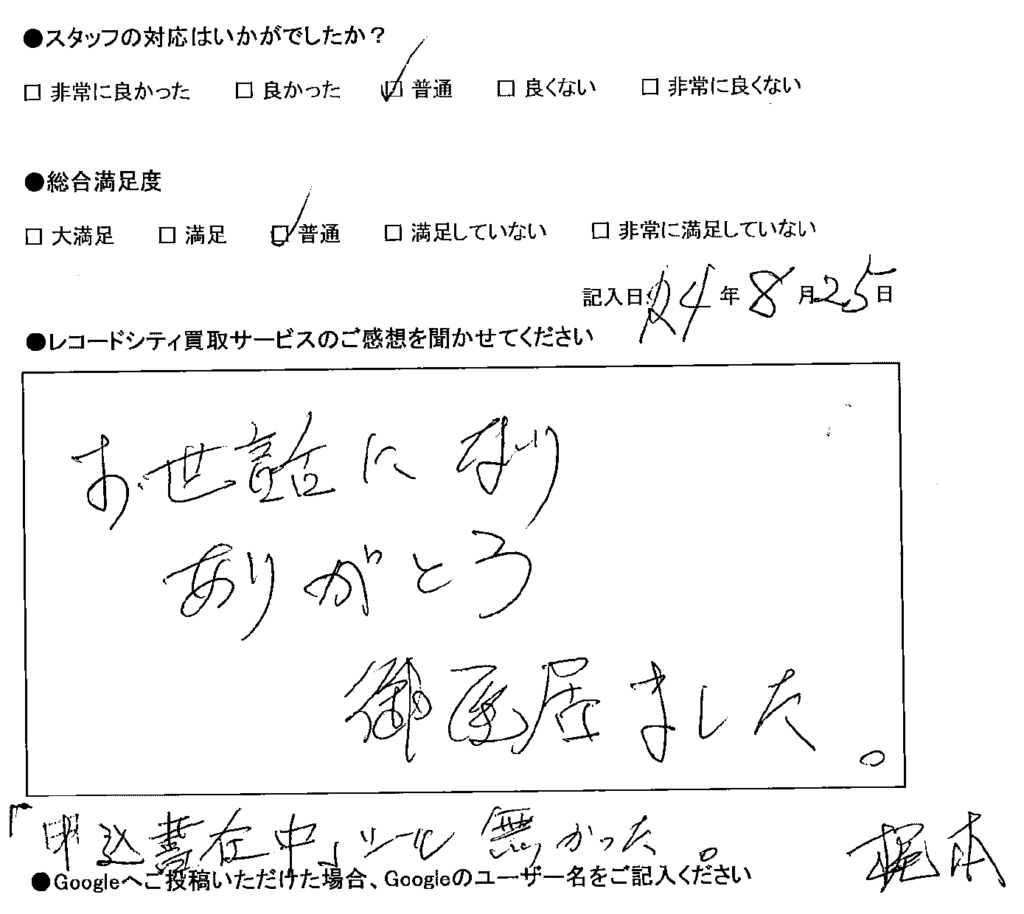 ●スタッフの対応はいかがでしたか？
□ 非常に良かった □ 良かった ☑ 普通 □ 良くない □ 非常に良くない
●総合満足度
□ 大満足 □ 満足 ☑ 普通 □ 満足していない □ 非常に満足していない
記入日 24年 8月25日
●レコードシティ買取サービスのご感想を聞かせてください
お世話になり
ありがとう
御座居ました。
「申込書在中」シール 無かった。
梶本
●Googleへご投稿いただけた場合、Googleのユーザー名をご記入ください